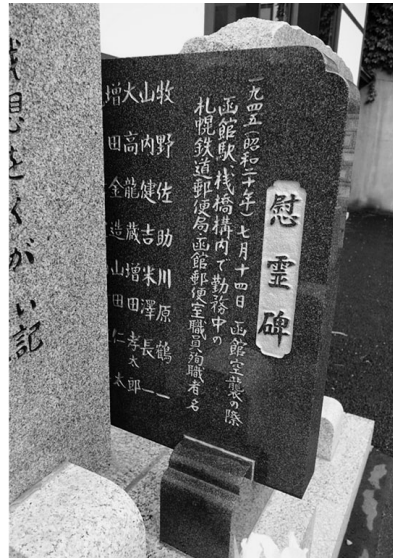 慰霊碑
一九四五(昭和二十年)七月十四日 函館空襲の際
函館駅、桟橋構内で勤務中の
札幌鉄道郵便局・函館郵便室職員殉職者名
牧野佐助 川原鶴一
山内健吉 米澤長一
大高龍蔵 増田孝太郎
増田金造 山田仁太